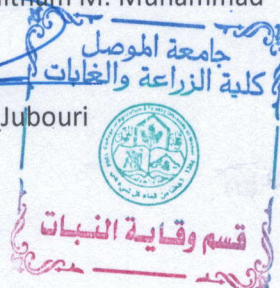 M. Muhammad
جامعة الموصل
كلية الزراعة والغابات
Jubouri
قسم وقاية النبات